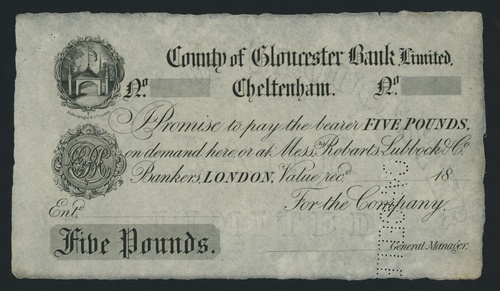 County of Gloucester Bank Limited.
No. Cheltenham. No.
I Promise to pay the bearer FIVE POUNDS,
on demand here, or at Mess.rs Robarts Lubbock & Co.
Bankers, LONDON, Value, rec.d 18
For the Company,
Ent.d
Five Pounds.
General Manager.